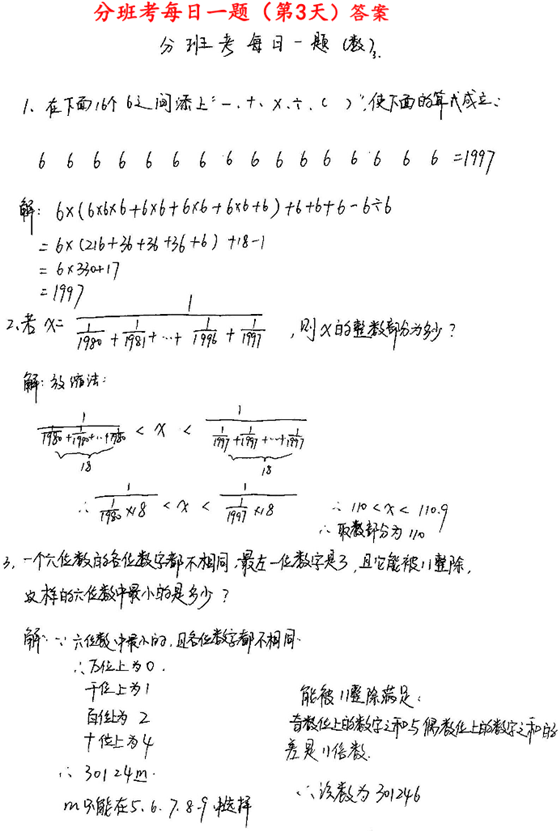 分班考每日一题（第3天）答案
分班考每日一题（数）3.
1、在下面16个6之间添上"－、＋、×、÷、（ ）"，使下面的算式成立：
6 6 6 6 6 6 6 6 6 6 6 6 6 6 6 6 =1997
解：6×(6×6×6+6×6+6×6+6×6+6)+6+6+6-6÷6
=6×(216+36+36+36+6)+18-1
=6×330+17
=1997
2、若 x= 1/(1/1980 + 1/1981 +…+ 1/1996 + 1/1997)，则x的整数部分为多少？
解：放缩法：
1/(1/1980+1/1980+…+1/1980) < x < 1/(1/1997+1/1997+…+1/1997)
18 18
∴ 1/(1/1980 ×18) < x < 1/(1/1997 ×18) ∴ 110<x<110.9
∴ 取数部分为110
3、一个六位数的各位数字都不相同，最左一位数字是3，且它能被11整除，
这样的六位数中最小的是多少？
解：∵六位数中最小的，且各位数字都不相同.
∴万位上为0.
千位上为1
百位上为 2
十位上为4
∴ 30124m.
m只能在5、6、7、8、9中选择
能被11整除满足：
奇数位上的数字之和与偶数位上的数字之和的
差是11倍数.
∴该数为301246